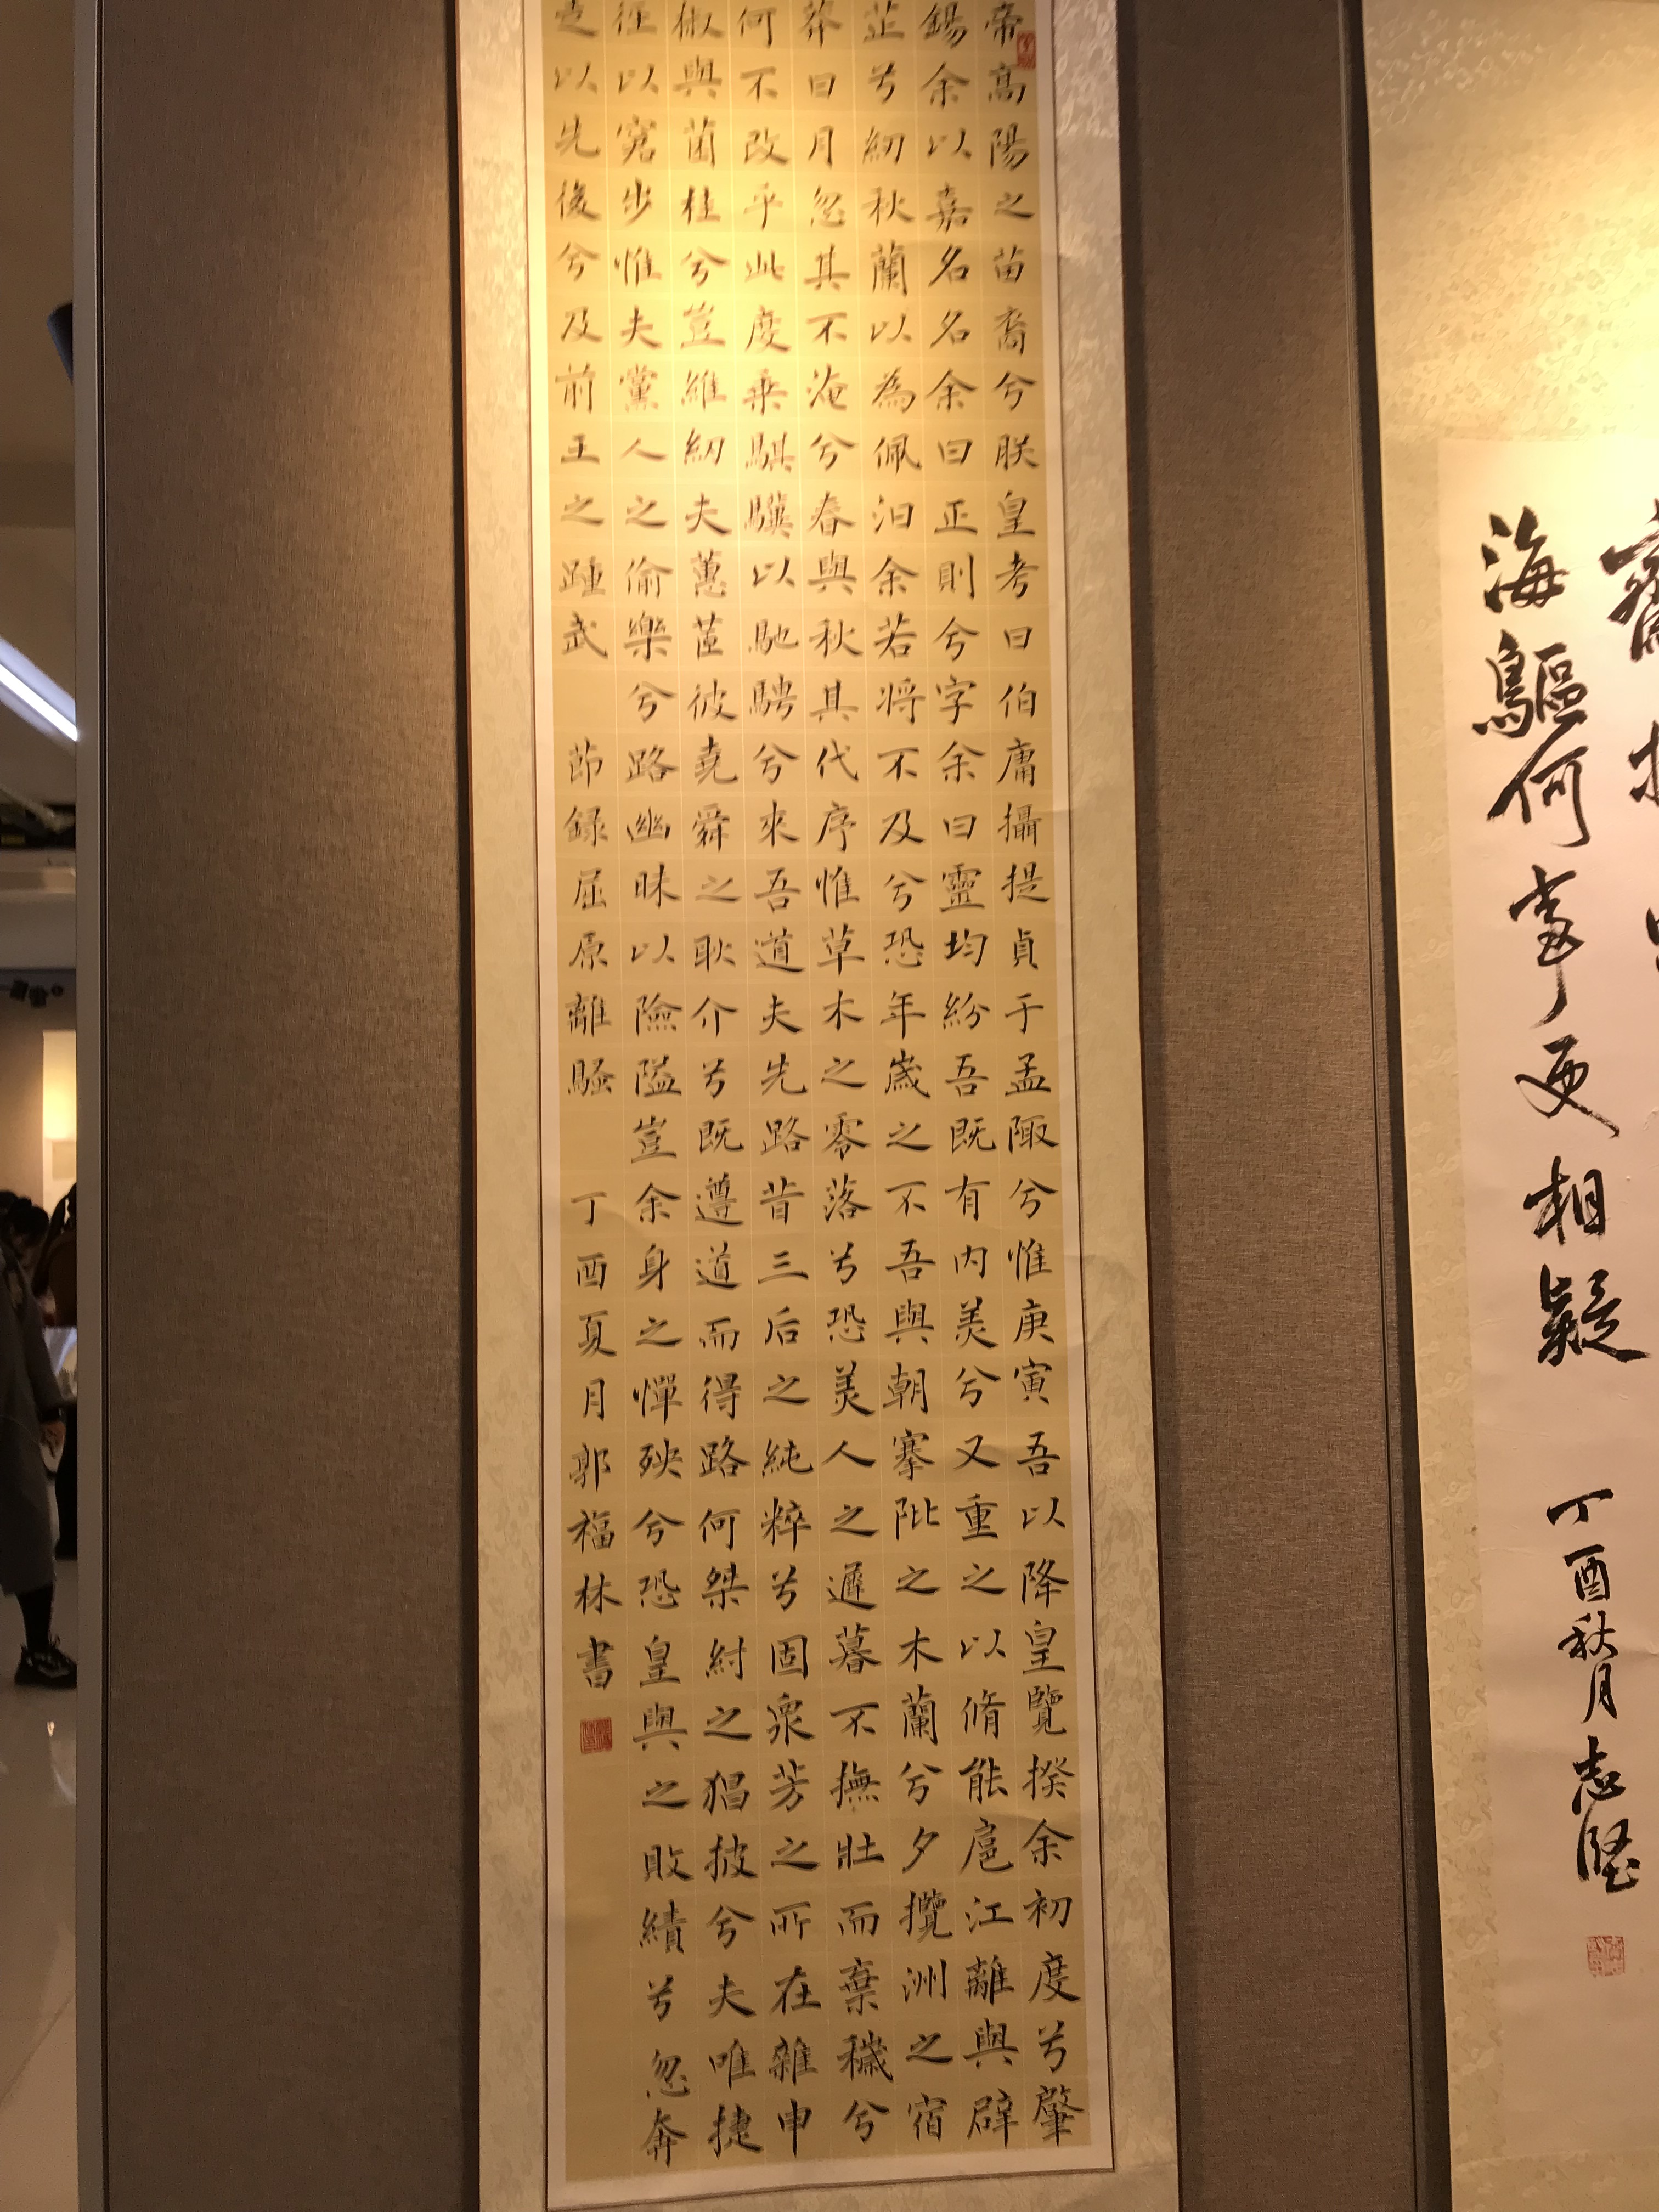 海驅何事更相疑 丁酉秋月志堅
帝高陽之苗裔兮朕皇考曰伯庸攝提貞于孟陬兮惟庚寅吾以降皇覽揆余初度兮肇
錫余以嘉名名余曰正則兮字余曰靈均紛吾既有內美兮又重之以脩能扈江離與辟
芷兮紉秋蘭以為佩汨余若將不及兮恐年歲之不吾與朝搴阰之木蘭兮夕攬洲之宿
莽日月忽其不淹兮春與秋其代序惟草木之零落兮恐美人之遲暮不撫壯而棄穢兮
何不改乎此度乘騏驥以馳騁兮來吾道夫先路昔三后之純粹兮固眾芳之所在雜申
椒與菌桂兮豈維紉夫蕙茝彼堯舜之耿介兮既遵道而得路何桀紂之猖披兮夫唯捷
徑以窘步惟夫黨人之偷樂兮路幽昧以險隘豈余身之憚殃兮恐皇與之敗績兮忽奔
走以先後兮及前王之踵武 節錄屈原離騷 丁酉夏月郭福林書